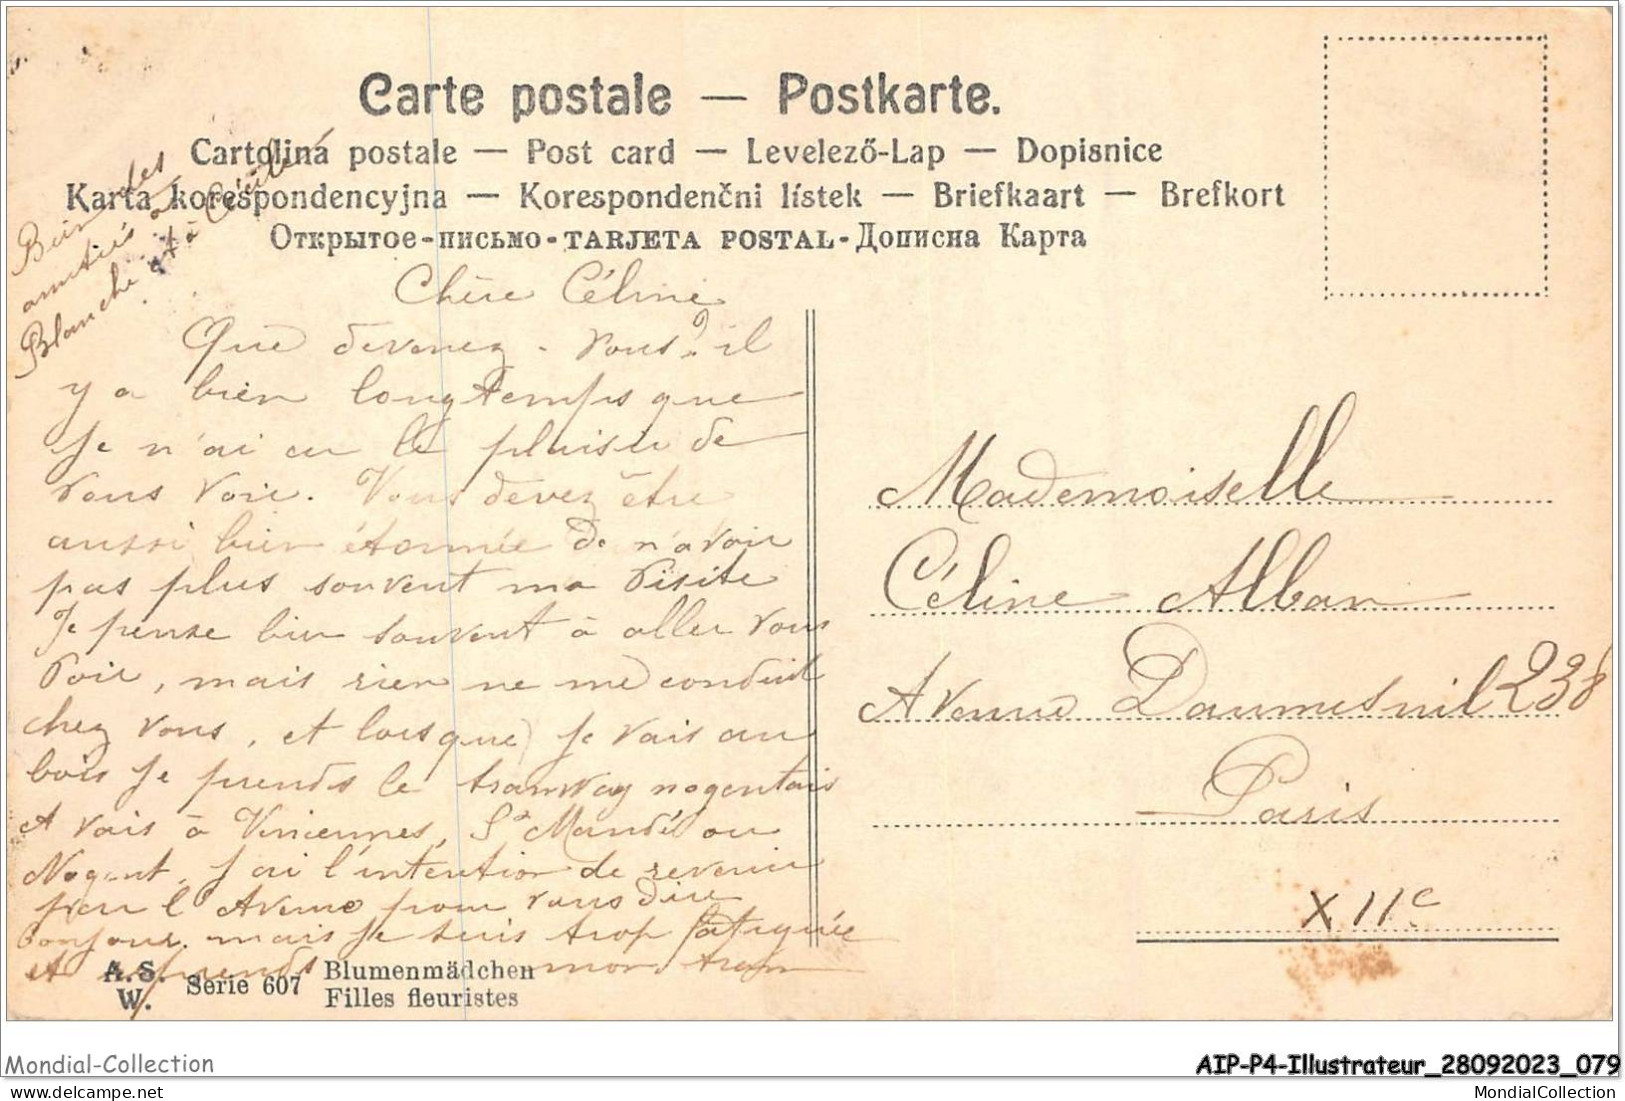 Carte postale — Postkarte.
Cartolina postale — Post card — Levelező-Lap — Dopisnice
Karta korespondencyjna — Korespondenčni lístek — Briefkaart — Brefkort
Открытое-письмо - TARJETA POSTAL - Дописна Карта
des
amitiés à
Blanche et à Cécile
Chère Céline
Que devenez-vous? il
y a bien longtemps que
je n'ai eu le plaisir de
vous voir. Vous devez être
aussi bien étonnée de n'avoir
pas plus souvent ma visite
Je pense bien souvent à aller vous
voir, mais rien ne me conduit
chez vous, et lorsque je vais au
bois je prends le tramway nogentais
et vais à Vincennes, St Mandé ou
Nogent, j'ai l'intention de revenir
par l'Avenue pour vous dire
bonjour, mais je suis trop fatiguée
et prends mon tram
Mademoiselle
Céline Alban
Avenue Daumesnil 238
Paris
XIIe
A.S.
W.
Serie 607
Blumenmädchen
Filles fleuristes
Mondial-Collection
AIP-P4-Illustrateur_28092023_079
MondialCollection